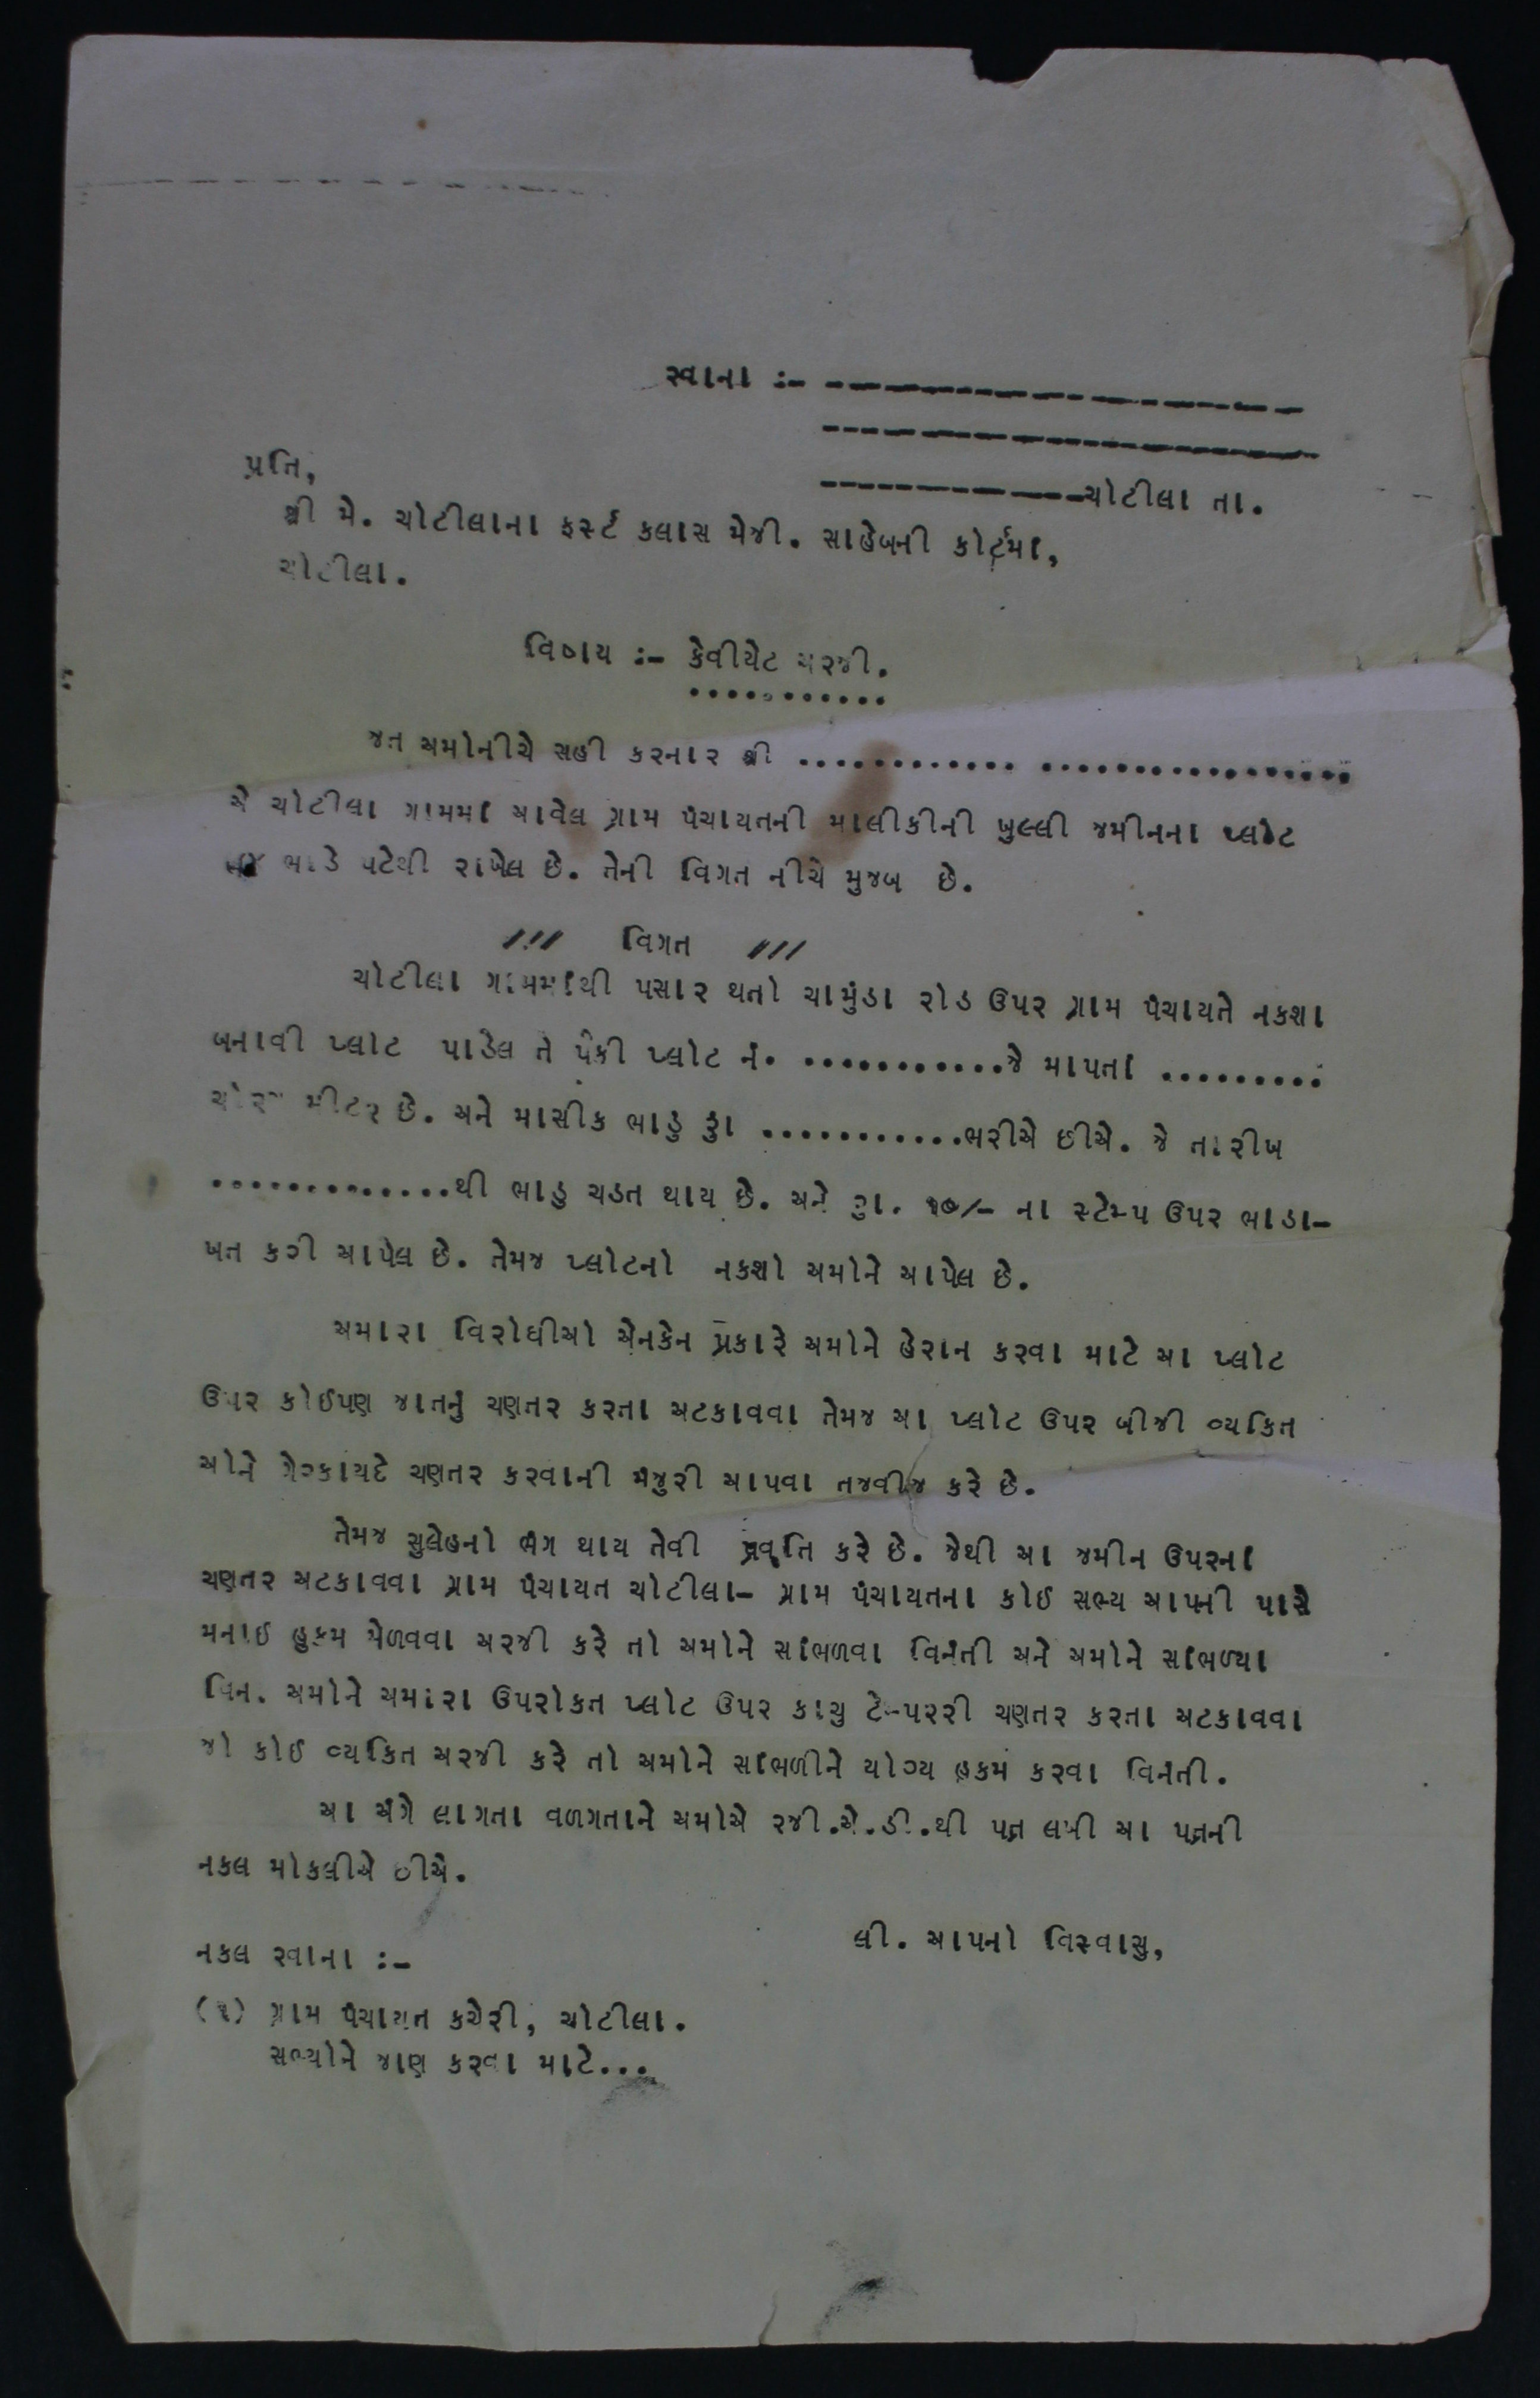 રવાના :- ------------------------
------------------------
-------------ચોટીલા તા.
પ્રતિ,
શ્રી મે. ચોટીલાના ફર્સ્ટ કલાસ મેજી. સાહેબની કોર્ટમાં,
ચોટીલા.
વિષય :- કેવીયેટ અરજી.
...........
જત અમોનીચે સહી કરનાર શ્રી ............ .................
એ ચોટીલા ગામમાં આવેલ ગ્રામ પંચાયતની માલીકીની ખુલ્લી જમીનના પ્લોટ
ભાડે પટેથી રાખેલ છે. તેની વિગત નીચે મુજબ છે.
/// વિગત ///
ચોટીલા ગામમાંથી પસાર થતો ચામુંડા રોડ ઉપર ગ્રામ પંચાયતે નકશા
બનાવી પ્લોટ પાડેલ તે પૈકી પ્લોટ નં. ...........જે માપતાં .........
ચોરસ મીટર છે. અને માસીક ભાડુ રૂા ...........ભરીએ છીએ. જે તારીખ
.............થી ભાડુ ચડત થાય છે. અને રૂા. ૧૦/- ના સ્ટેમ્પ ઉપર ભાડા-
ખત કરી આપેલ છે. તેમજ પ્લોટનો નકશો અમોને આપેલ છે.
અમારા વિરોધીઓ એનકેન પ્રકારે અમોને હેરાન કરવા માટે આ પ્લોટ
ઉપર કોઈપણ જાતનું ચણતર કરતા અટકાવવા તેમજ આ પ્લોટ ઉપર બીજી વ્યકિત
ઓને ગેરકાયદે ચણતર કરવાની મંજુરી આપવા તજવીજ કરે છે.
તેમજ સુલેહનો ભંગ થાય તેવી પ્રવૃતિ કરે છે. જેથી આ જમીન ઉપરનાં
ચણતર અટકાવવા ગ્રામ પંચાયત ચોટીલા- ગ્રામ પંચાયતના કોઈ સભ્ય આપની પાસે
મનાઈ હુકમ મેળવવા અરજી કરે તો અમોને સાંભળવા વિનંતી અને અમોને સાંભળ્યા
વિના અમોને અમારા ઉપરોકત પ્લોટ ઉપર કાચુ ટેમ્પરરી ચણતર કરતા અટકાવવા
જો કોઈ વ્યકિત અરજી કરે તો અમોને સાંભળીને યોગ્ય હુકમ કરવા વિનંતી.
આ અંગે લાગતા વળગતાને અમોએ રજી.એ.ડી.થી પત્ર લખી આ પત્રની
નકલ મોકલીએ છીએ.
લી. આપનો વિસ્વાસુ,
નકલ રવાના :-
(૧) ગ્રામ પંચાયત કચેરી, ચોટીલા.
સભ્યોને જાણ કરવા માટે...